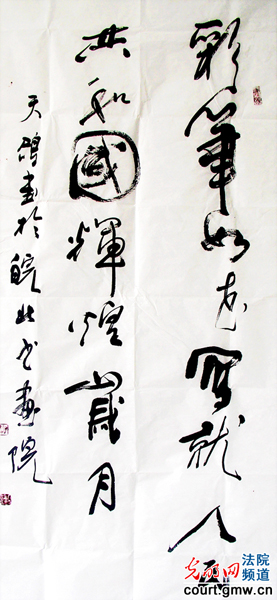 彩筆如花寫就人民
共和國輝煌歲月
天鴻書於皖北書畫院
光明网
法院
频道
court.gmw.cn